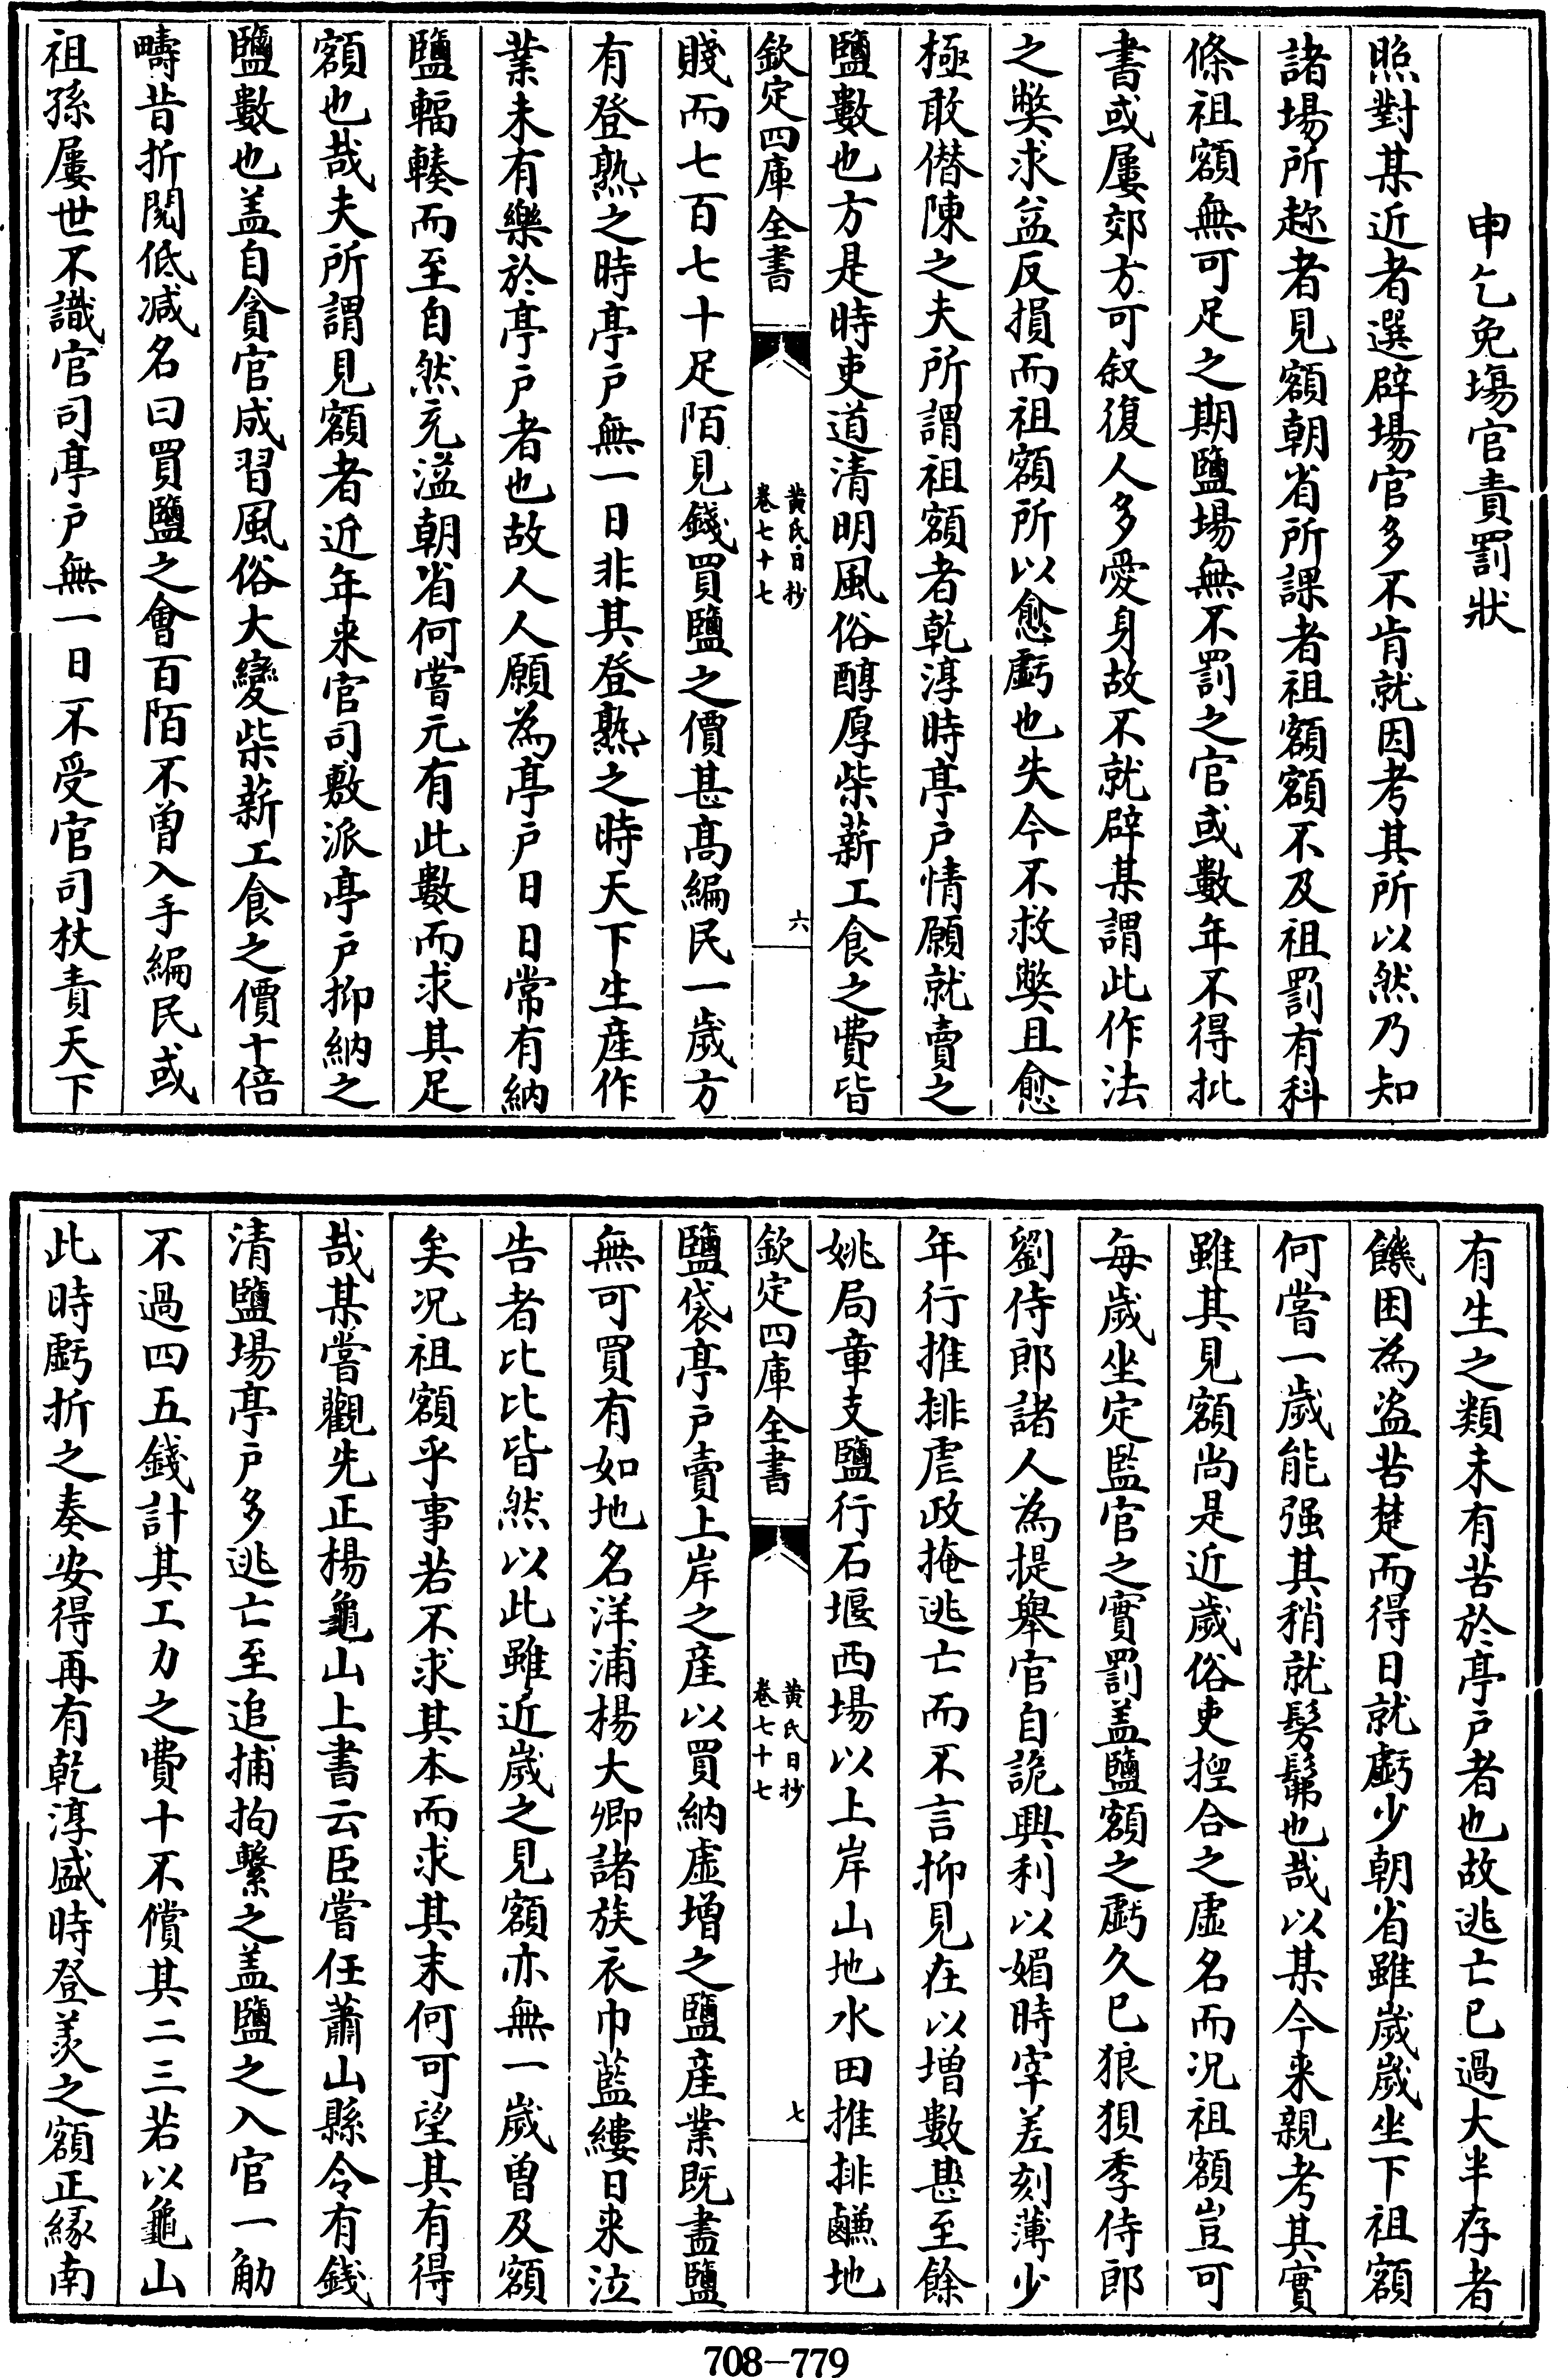 申乞免塲官責罰狀
照對某近者選辟場官多不肯就因考其所以然乃知
諸場所趂者見額朝省所課者祖額額不及祖罰有科
條祖額無可足之期鹽場無不罰之官或數年不得批
書或屢郊方可叙復人多愛身故不就辟某謂此作法
之獘求益反損而祖額所以愈虧也失今不救獘且愈
極敢僣陳之夫所謂祖額者乾淳時亭户情願就賣之
鹽數也方是時吏道清明風俗醇厚柴薪工食之費皆
欽定四庫全書
黄氏日抄
卷七十七
六
賤而七百七十足陌見錢買鹽之價甚髙編民一歲方
有登熟之時亭户無一日非其登熟之時天下生産作
業未有樂於亭户者也故人人願為亭户日日常有納
鹽輻輳而至自然充溢朝省何嘗元有此數而求其足
額也哉夫所謂見額者近年来官司敷派亭户抑納之
鹽數也盖自貪官成習風俗大變柴薪工食之價十倍
疇昔折閱低减名曰買鹽之會百陌不曽入手編民或
祖孫屢世不識官司亭户無一日不受官司杖責天下
有生之類未有苦於亭户者也故逃亡已過大半存者
饑困為盗苦楚而得日就虧少朝省雖歲歲坐下祖額
何嘗一歲能强其稍就髣髴也哉以某今来親考其實
雖其見額尚是近歲俗吏揑合之虚名而况祖額豈可
每歲坐定監官之實罰盖鹽額之虧久已狼狽季侍郎
劉侍郎諸人為提舉官自詭興利以媚時宰差刻薄少
年行推排虐政掩逃亡而不言抑見在以增數甚至餘
姚局章支鹽行石堰西場以上岸山地水田推排鹻地
欽定四庫全書
黄氏日抄
卷七十七
七
鹽袋亭户賣上岸之産以買納虚增之鹽産業既盡鹽
無可買有如地名洋浦楊大卿諸族衣巾藍縷日来泣
告者比比皆然以此雖近歲之見額亦無一歲曽及額
矣况祖額乎事若不求其本而求其末何可望其有得
哉某嘗觀先正楊龜山上書云臣嘗任蕭山縣令有錢
清鹽場亭户多逃亡至追捕拘繫之盖鹽之入官一觔
不過四五錢計其工力之費十不償其二三若以龜山
此時虧折之奏安得再有乾淳盛時登羡之額正緣南
708—779